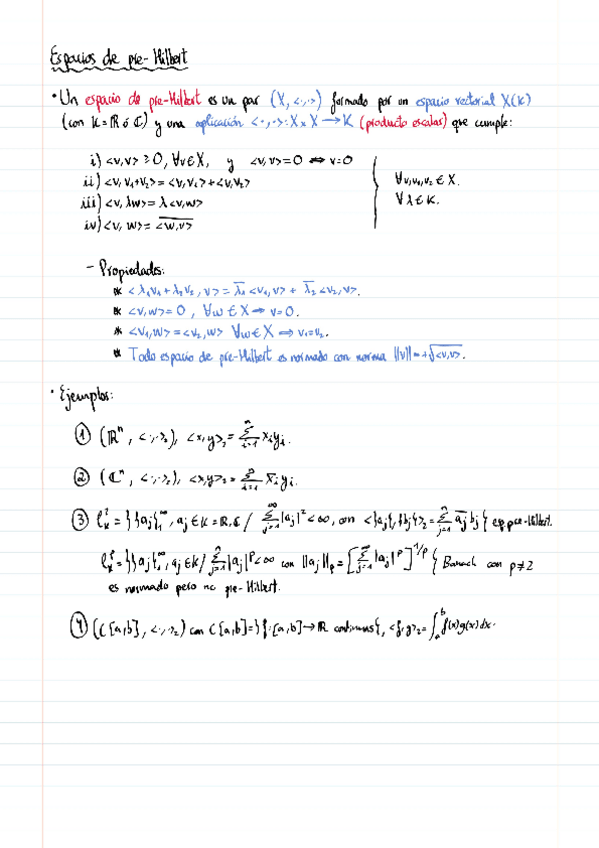 Espacios de pre-Hilbert
• Un espacio de pre-Hilbert es un par (X, <·,·>) formado por un espacio vectorial X(K)
(con K = ℝ ó ℂ) y una aplicación <·,·>: X x X → K (producto escalar) que cumple:
i) <v,v> ≥ 0, ∀v∈X, y <v,v> = 0 ⇔ v=0
ii) <v, v₁+v₂> = <v,v₁> + <v,v₂>
∀v,v₁,v₂ ∈ X.
iii) <v, λw> = λ<v,w>
∀λ ∈ K.
iv) <v, w> = \overline{<w,v>}
- Propiedades:
* <λ₁v₁ + λ₂v₂, v> = \overline{λ₁}<v₁,v> + \overline{λ₂}<v₂,v>.
* <v,w> = 0, ∀w ∈ X ⇒ v=0.
* <v₁,w> = <v₂,w> ∀w ∈ X ⇒ v₁=v₂.
* Todo espacio de pre-Hilbert es normado con norma ||v|| = +√<v,v>.
• Ejemplos:
① (ℝⁿ, <·,·>₂), <x,y>₂ = \sum_{i=1}^{n} xᵢyᵢ.
② (ℂⁿ, <·,·>₂), <x,y>₂ = \sum_{i=1}^{n} \overline{xᵢ}yᵢ.
③ ℓ²_K = {{aⱼ}₁^∞, aⱼ ∈ K = ℝ,ℂ / \sum_{j=1}^{∞} |aⱼ|² < ∞, con <{aⱼ},{bⱼ}>₂ = \sum_{j=1}^{∞} \overline{aⱼ}bⱼ} esp. pre-Hilbert.
ℓᵖ_K = {{aⱼ}₁^∞, aⱼ ∈ K / \sum_{j=1}^{∞} |aⱼ|ᵖ < ∞ con ||aⱼ||ₚ = [\sum_{j=1}^{∞} |aⱼ|ᵖ]^{1/p}} Banach con p≠2
es normado pero no pre-Hilbert.
④ (C[a,b], <·,·>₂) con C[a,b] = {f: [a,b] → ℝ continuas}, <f,g>₂ = \int_a^b f(x)g(x)dx.